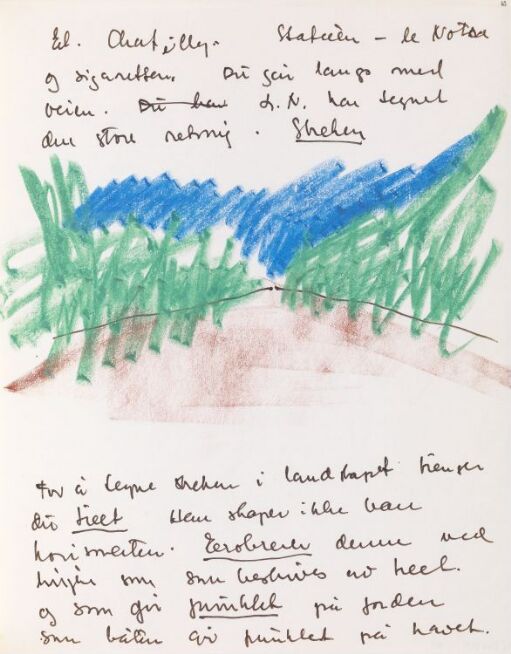 Statuen – le Notre
og sigaretten. Du går langs med
veien. L.N. har tegnet
den store retning. Streken
For å tegne streken i landskapet trenger
du treet Han skaper ikke bare
horisonten. Erobrer denne ved
som beskrives ved treet.
og som gir punktet på jorden
som båten gir punktet på havet.